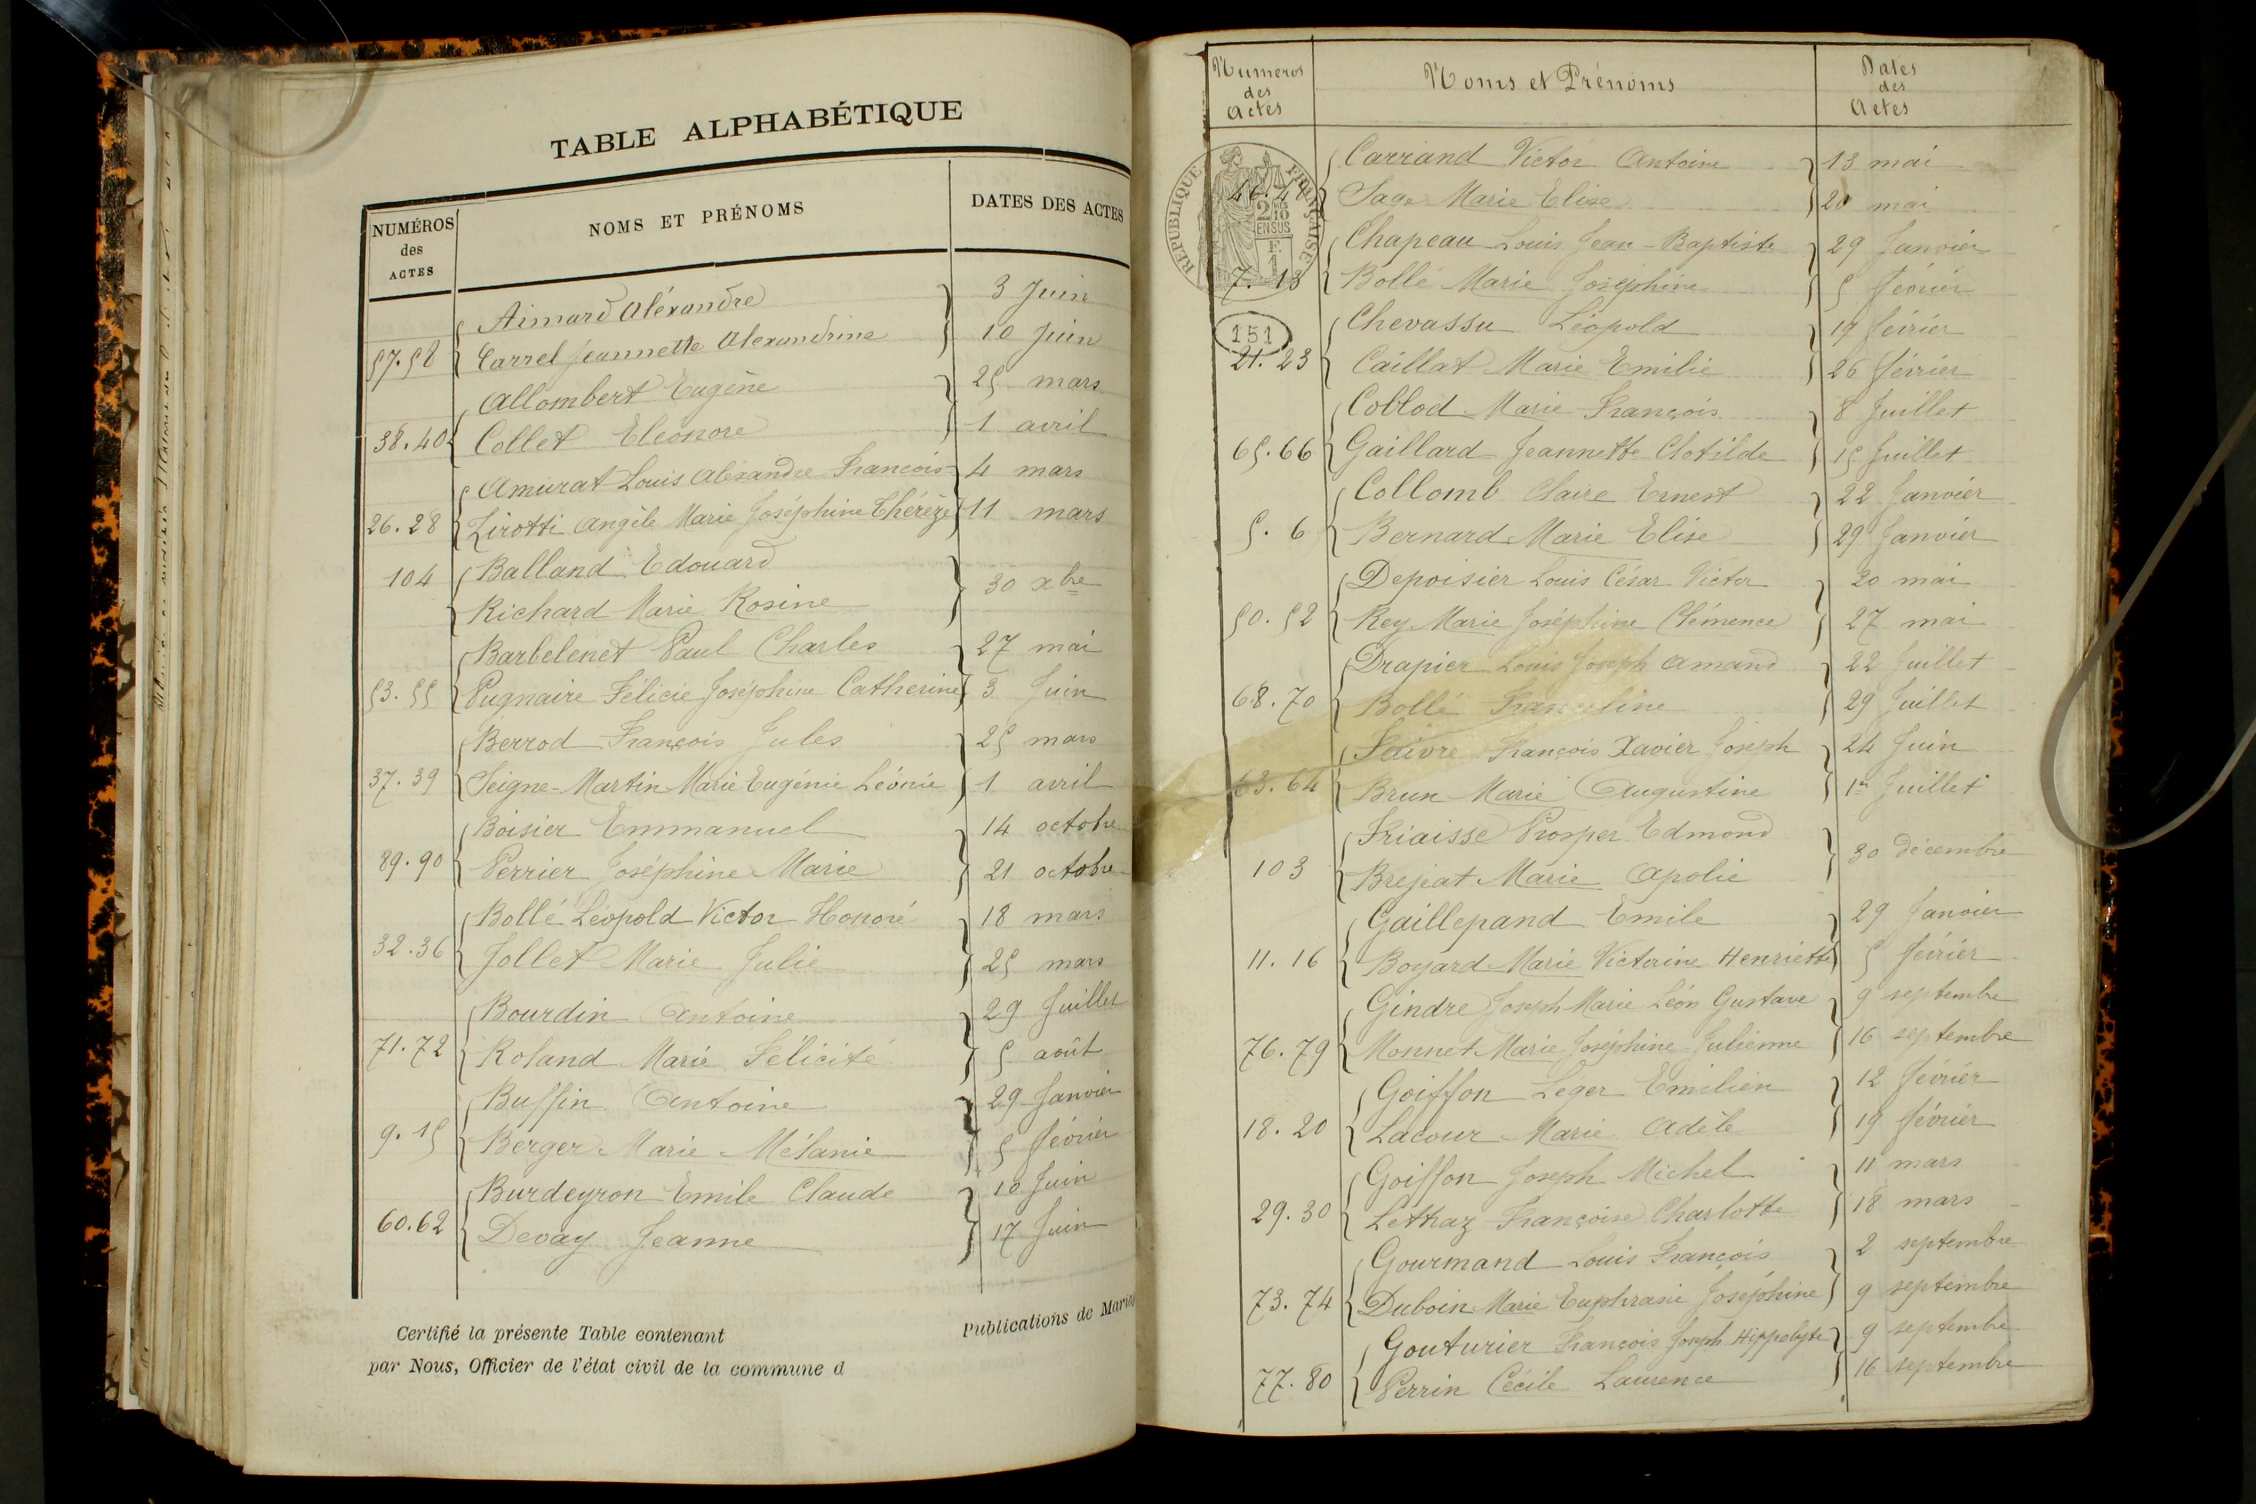 TABLE ALPHABÉTIQUE
NUMÉROS des ACTES
NOMS ET PRÉNOMS
DATES DES ACTES
Aimard Aléxandre 3 Juin
57.58 Carrel Jeannette Alexandrine 10 Juin
Allombert Eugène 25 mars
38.40 Collet Eleonore 1 avril
Amurat Louis Aléxandre François 4 mars
26.28 Zirotti Angèle Marie Joséphine Thérèze 11 mars
104 Balland Edouard
30 xbre
Richard Marie Rosine
Barbelenet Paul Charles 27 mai
53.55 Pugnaire Félicie Joséphine Catherine 3 Juin
Berrod François Jules 25 mars
37.39 Seigne-Martin Marie Eugénie Léonie 1 avril
Boisier Emmanuel 14 octobre
89.90 Perrier Joséphine Marie 21 octobre
Bollé Léopold Victor Honoré 18 mars
32.36 Jollet Marie Julie 25 mars
Bourdin Antoine 29 Juillet
71.72 Roland Marie Félicité 5 août
Buffin Antoine 29 Janvier
9.15 Berger Marie Mélanie 5 février
Burdeyron Emile Claude 10 Juin
60.62 Devay Jeanne 17 Juin
Certifié la présente Table contenant
Publications de Maria
par Nous, Officier de l'état civil de la commune d
Numeros des Actes
Noms et Prénoms
Dates des Actes
RÉPUBLIQUE FRANÇAISE
2/10 EN SUS
Carrand Victor Antoine 13 mai
Sage Marie Elise 20 mai
Chapeau Louis Jean-Baptiste 29 Janvier
7.13 Bollé Marie Joséphine 5 février
151
Chevassu Léopold 19 février
21.23 Caillat Marie Emilie 26 février
Coblod Marie François 8 Juillet
65.66 Gaillard Jeannette Clotilde 15 Juillet
Collomb Claire Ernest 22 Janvier
5.6 Bernard Marie Elise 29 Janvier
Depoisier Louis César Victor 20 mai
50.52 Rey Marie Joséphine Clémence 27 mai
Drapier Louis Joseph Amand 22 Juillet
68.70 Bollé Franceline 29 Juillet
Faivre François Xavier Joseph 24 Juin
63.64 Brun Marie Augustine 1er Juillet
Friaisse Prosper Edmond
30 décembre
103 Brejeat Marie Apolie
Gaillepand Emile 29 Janvier
11.16 Boyard Marie Victorine Henriette 5 février
Gindre Joseph Marie Léon Gustave 9 septembre
76.79 Monnet Marie Joséphine Julienne 16 septembre
Goiffon Leger Emilien 12 février
18.20 Lacour Marie Adèle 19 février
Goiffon Joseph Michel 11 mars
29.30 Lethaz Françoise Charlotte 18 mars
Gourmand Louis François 2 septembre
73.74 Duboin Marie Euphrasie Joséphine 9 septembre
Gouturier François Joseph Hippolyte 9 septembre
77.80 Perrin Cécile Laurence 16 septembre